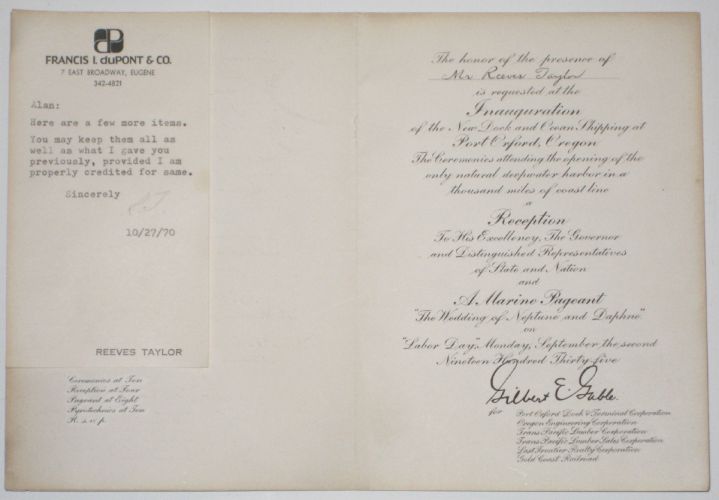 FRANCIS I. duPONT & CO.
7 EAST BROADWAY, EUGENE
342-4821
Alan:
Here are a few more items.
You may keep them all as
well as what I gave you
previously, provided I am
properly credited for same.
Sincerely
10/27/70
REEVES TAYLOR
Ceremonies at Ten
Reception at Four
Pageant at Eight
Pyrotechnics at Ten
R. s. v. p.
The honor of the presence of
Mr Reeves Taylor
is requested at the
Inauguration
of the New Dock and Ocean Shipping at
Port Orford, Oregon
The Ceremonies attending the opening of the
only natural deepwater harbor in a
thousand miles of coast line
a
Reception
To His Excellency, The Governor
and Distinguished Representatives
of State and Nation
and
A Marine Pageant
"The Wedding of Neptune and Daphne"
on
"Labor Day," Monday, September the second
Nineteen Hundred Thirty-five
Gilbert E. Gable
for Port Orford Dock & Terminal Corporation
Oregon Engineering Corporation
Trans Pacific Lumber Corporation
Trans Pacific Lumber Sales Corporation
Last Frontier Realty Corporation
Gold Coast Railroad